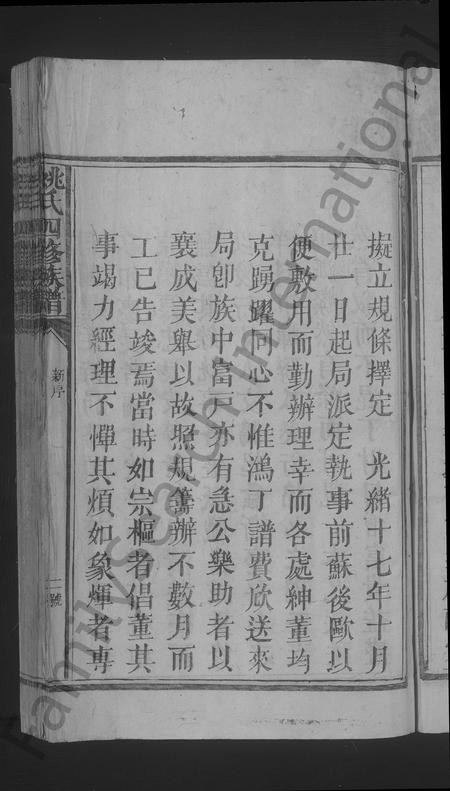 擬立規條擇定　光緒十七年十月
廿一日起局派定執事前蘇後歐以
便敷用而勤辦理幸而各處紳董均
克踴躍同心不惟鴻丁譜費欣送來
局卽族中富戸亦有急公樂助者以
襄成美舉以故照規籌辦不數月而
工已告竣焉當時如宗樞者倡董其
事竭力經理不憚其煩如象煇者專
姚氏四修族譜
新序
二號
FamilySearch International